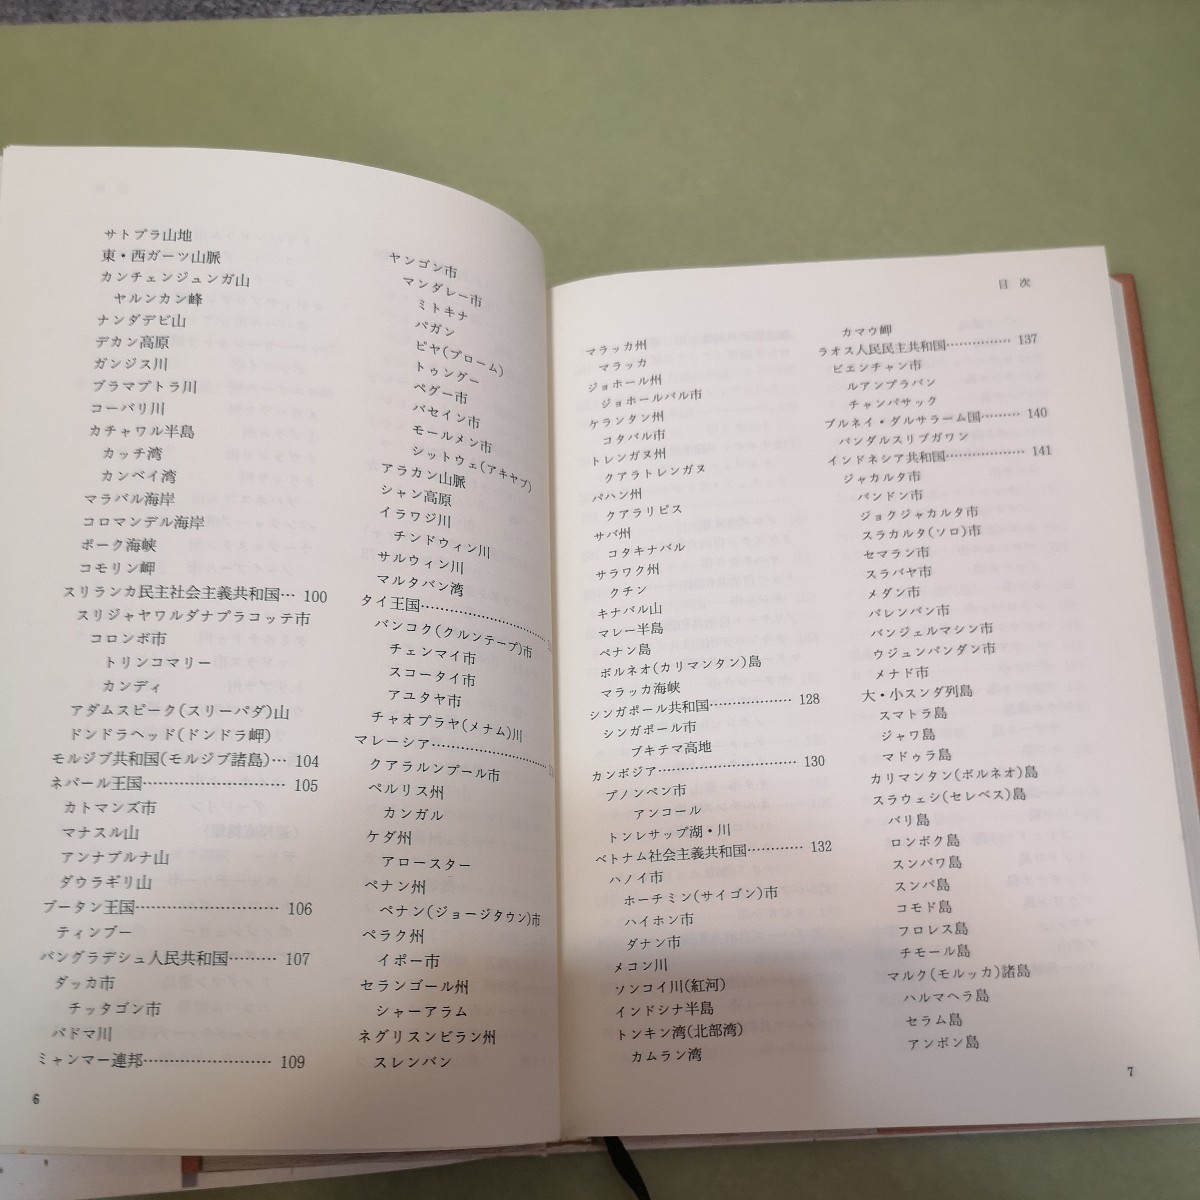 サトプラ山地
東・西ガーツ山脈
カンチェンジュンガ山
ヤルンカン峰
ナンダデビ山
デカン高原
ガンジス川
ブラマプトラ川
コーバリ川
カチャワル半島
カッチ湾
カンベイ湾
マラバル海岸
コロマンデル海岸
ポーク海峡
コモリン岬
スリランカ民主社会主義共和国… 100
スリジャヤワルダナプラコッテ市
コロンボ市
トリンコマリー
カンディ
アダムスピーク(スリーパダ)山
ドンドラヘッド(ドンドラ岬)
モルジブ共和国(モルジブ諸島)… 104
ネパール王国……………………… 105
カトマンズ市
マナスル山
アンナプルナ山
ダウラギリ山
ブータン王国……………………… 106
ティンプー
バングラデシュ人民共和国……… 107
ダッカ市
チッタゴン市
パドマ川
ミャンマー連邦…………………… 109
6
ヤンゴン市
マンダレー市
ミトキナ
パガン
ピヤ(プローム)
トゥングー
ペグー市
パセイン市
モールメン市
シットウェ(アキャブ)
アラカン山脈
シャン高原
イラワジ川
チンドウィン川
サルウィン川
マルタバン湾
タイ王国……………………
バンコク(クルンテープ)市
チェンマイ市
スコータイ市
アユタヤ市
チャオプラヤ(メナム)川
マレーシア…………………
クアラルンプール市
ペルリス州
カンガル
ケダ州
アロースター
ペナン州
ペナン(ジョージタウン)市
ペラク州
イポー市
セランゴール州
シャーアラム
ネグリスンビラン州
スレンバン
目次
マラッカ州
マラッカ
ジョホール州
ジョホールバル市
ケランタン州
コタバル市
トレンガヌ州
クアラトレンガヌ
パハン州
クアラリピス
サバ州
コタキナバル
サラワク州
クチン
キナバル山
マレー半島
ペナン島
ボルネオ(カリマンタン)島
マラッカ海峡
シンガポール共和国……………… 128
シンガポール市
ブキテマ高地
カンボジア………………………… 130
プノンペン市
アンコール
トンレサップ湖・川
ベトナム社会主義共和国………… 132
ハノイ市
ホーチミン(サイゴン)市
ハイホン市
ダナン市
メコン川
ソンコイ川(紅河)
インドシナ半島
トンキン湾(北部湾)
カムラン湾
カマウ岬
ラオス人民民主共和国…………… 137
ビエンチャン市
ルアンプラバン
チャンパサック
ブルネイ・ダルサラーム国……… 140
バンダルスリブガワン
インドネシア共和国……………… 141
ジャカルタ市
バンドン市
ジョクジャカルタ市
スラカルタ(ソロ)市
セマラン市
スラバヤ市
メダン市
パレンバン市
バンジェルマシン市
ウジュンパンダン市
メナド市
大・小スンダ列島
スマトラ島
ジャワ島
マドゥラ島
カリマンタン(ボルネオ)島
スラウェシ(セレベス)島
バリ島
ロンボク島
スンバワ島
スンバ島
コモド島
フロレス島
チモール島
マルク(モルッカ)諸島
ハルマヘラ島
セラム島
アンボン島
7